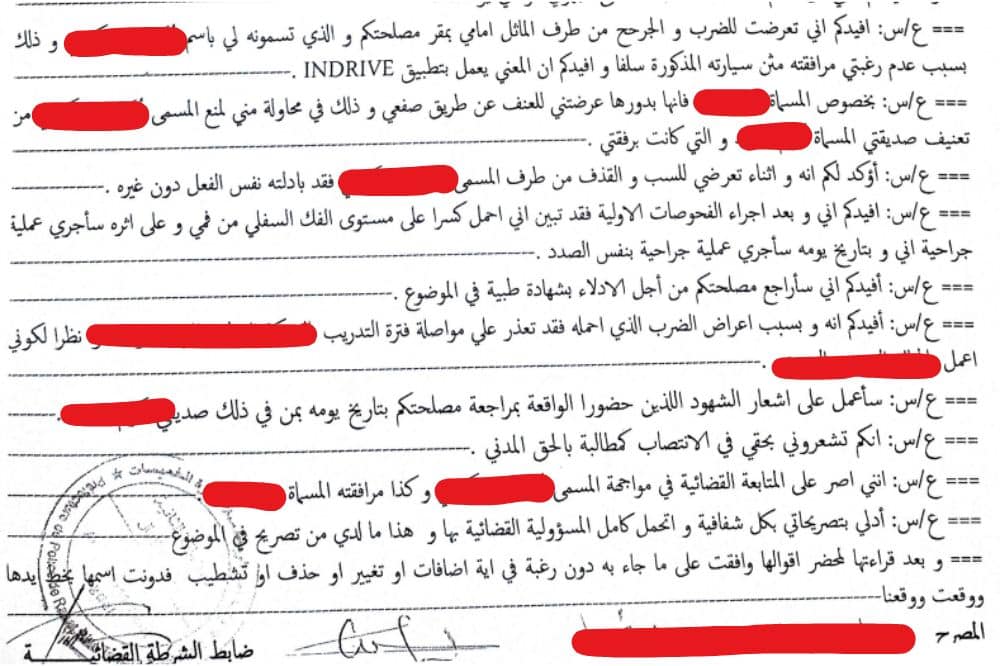 === ع/س: افيدكم اني تعرضت للضرب و الجرحح من طرف الماثل امامي بمقر مصلحتكم و الذي تسمونه لي باسم و ذلك
بسبب عدم رغبتي مرافقته متن سيارته المذكورة سلفا و افيدكم ان المعني يعمل بتطبيق INDRIVE .
=== ع/س: بخصوص المسماة فانها بدورها عرضتني للعنف عن طريق صفعي و ذلك في محاولة مني لمنع المسمى من
تعنيف صديقتي المسماة و التي كانت برفقتي .
=== ع/س: أؤكد لكم انه و اثناء تعرضي للسب و القذف من طرف المسمى فقد بادلته نفس الفعل دون غيره .
=== ع/س: افيدكم اني و بعد اجراء الفحوصات الاولية فقد تبين اني احمل كسرا على مستوى الفك السفلي من فمي و على اثره سأجري عملية
جراحية اني و بتاريخ يومه سأجري عملية جراحية بنفس الصدد .
=== ع/س: أفيدكم اني سأراجع مصلحتكم من أجل الادلاء بشهادة طبية في الموضوع .
=== ع/س: أفيدكم انه و بسبب اعراض الضرب الذي احمله فقد تعذر علي مواصلة فترة التدريب نظرا لكوني
اعمل .
=== ع/س: سأعمل على اشعار الشهود اللذين حضورا الواقعة بمراجعة مصلحتكم بتاريخ يومه بمن في ذلك
=== ع/س: انكم تشعروني بحقي في الانتصاب كمطالبة بالحق المدني .
=== ع/س: انني اصر على المتابعة القضائية في مواجهة المسمى و كذا مرافقته المسماة .
=== ع/س: أدلي بتصريحاتي بكل شفافية و اتحمل كامل المسؤولية القضائية بها و هذا ما لدي من تصريح في الموضوع
=== و بعد قراءتها لمحضر اقوالها وافقت على ما جاء به دون رغبة في اية اضافات او تغيير او حذف او تشطيب فدونت اسمها بخط ايدها
ووقعت ووقعنا
المصرح
ضابط الشرطة القضائيـــة